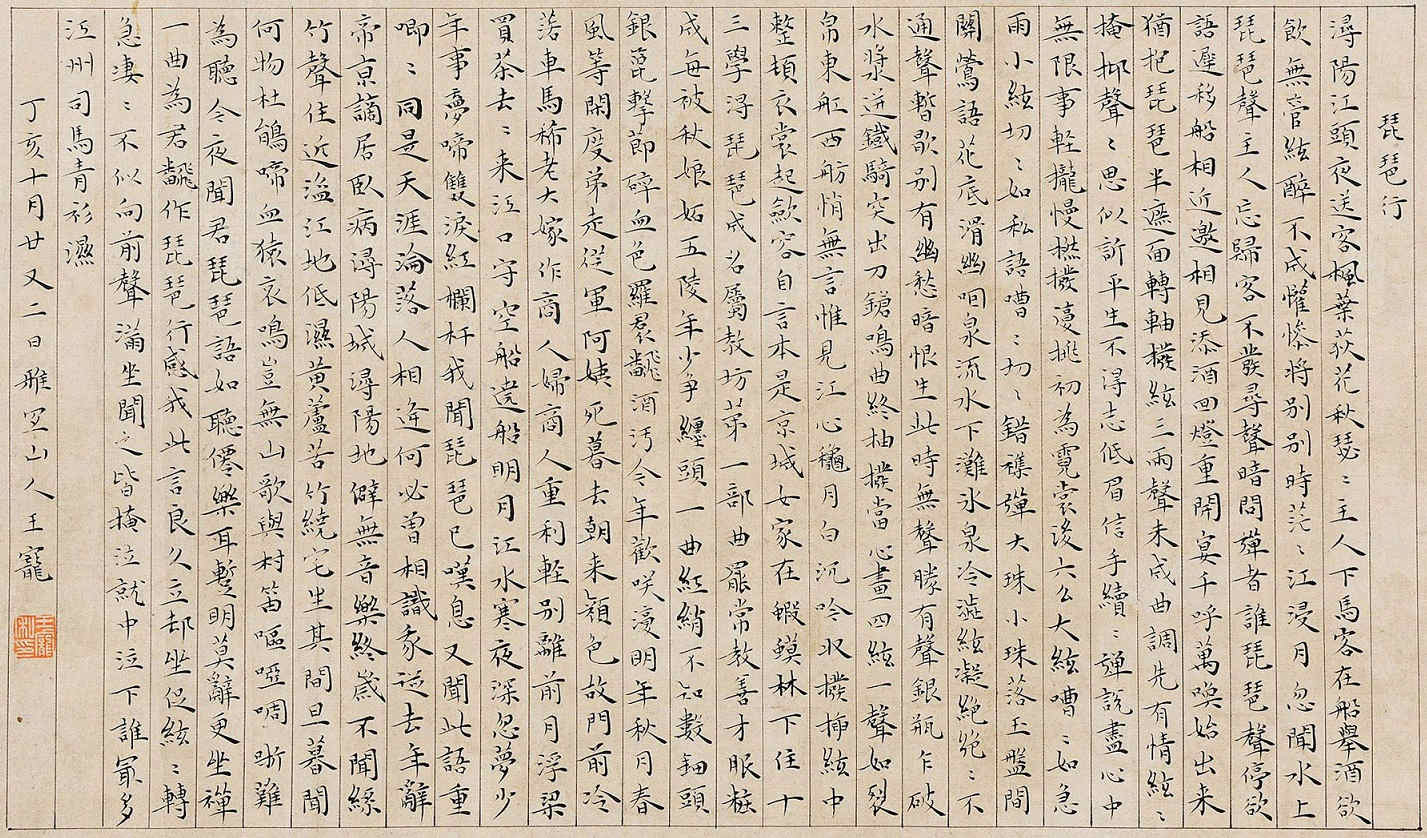 琵琶行
潯陽江頭夜送客楓葉荻花秋瑟〻主人下馬客在船舉酒欲
飲無管絃醉不成懽慘將别别時茫〻江浸月忽聞水上
琵琶聲主人忘歸客不發尋聲暗問彈者誰琵琶聲停欲
語遲移船相近邀相見添酒回燈重開宴千呼萬喚始出来
猶把琵琶半遮面轉軸撥絃三兩聲未成曲調先有情絃〻
掩抑聲〻思似訴平生不得志低眉信手續〻彈說盡心中
無限事軽攏慢撚撥復挑初為霓裳後六么大絃嘈〻如急
雨小絃切〻如私語嘈〻切〻錯襍彈大珠小珠落玉盤間
關鶯語花底滑幽咽泉流水下灘氷泉冷澁絃凝絕絕〻不
通聲暫歇别有幽愁暗恨生此時無聲勝有聲銀瓶乍破
水漿迸鐵騎突出刀鎗鳴曲終抽撥當心畫四絃一聲如裂
帛東舡西舫悄無言惟見江心秋月白沉吟収撥插絃中
整頓衣裳起歛容自言本是京城女家在蝦蟆林下住十
三學得琵琶成名屬教坊第一部曲罷常教善才服粧
成每被秋娘妬五陵年少争纏頭一曲紅綃不知數鈿頭
銀篦擊節碎血色羅裙飜酒汚今年歡咲復明年秋月春
風等閑度弟走從軍阿姨死暮去朝来顏色故門前冷
落車馬稀老大嫁作商人婦商人重利軽别離前月浮梁
買茶去〻来江口守空船遶船明月江水寒夜深忽夢少
年事夢啼雙淚紅欄杆我聞琵琶已嘆息又聞此語重
唧〻同是天涯淪落人相逢何必曽相識我從去年辭
帝京謫居臥病潯陽城潯陽地僻無音樂終歲不聞絲
竹聲住近湓江地低濕黄蘆苦竹繞宅生其間旦暮聞
何物杜鵑啼血猿哀鳴豈無山歌與村笛嘔啞啁哳難
為聽今夜聞君琵琶語如聽僊樂耳暫明莫辭更坐彈
一曲為君飜作琵琶行感我此言良久立却坐促絃〻轉
急凄〻不似向前聲滿坐聞之皆掩泣就中泣下誰冣多
江州司馬青衫濕
丁亥十月廿又二日雅宜山人王寵
王寵私印